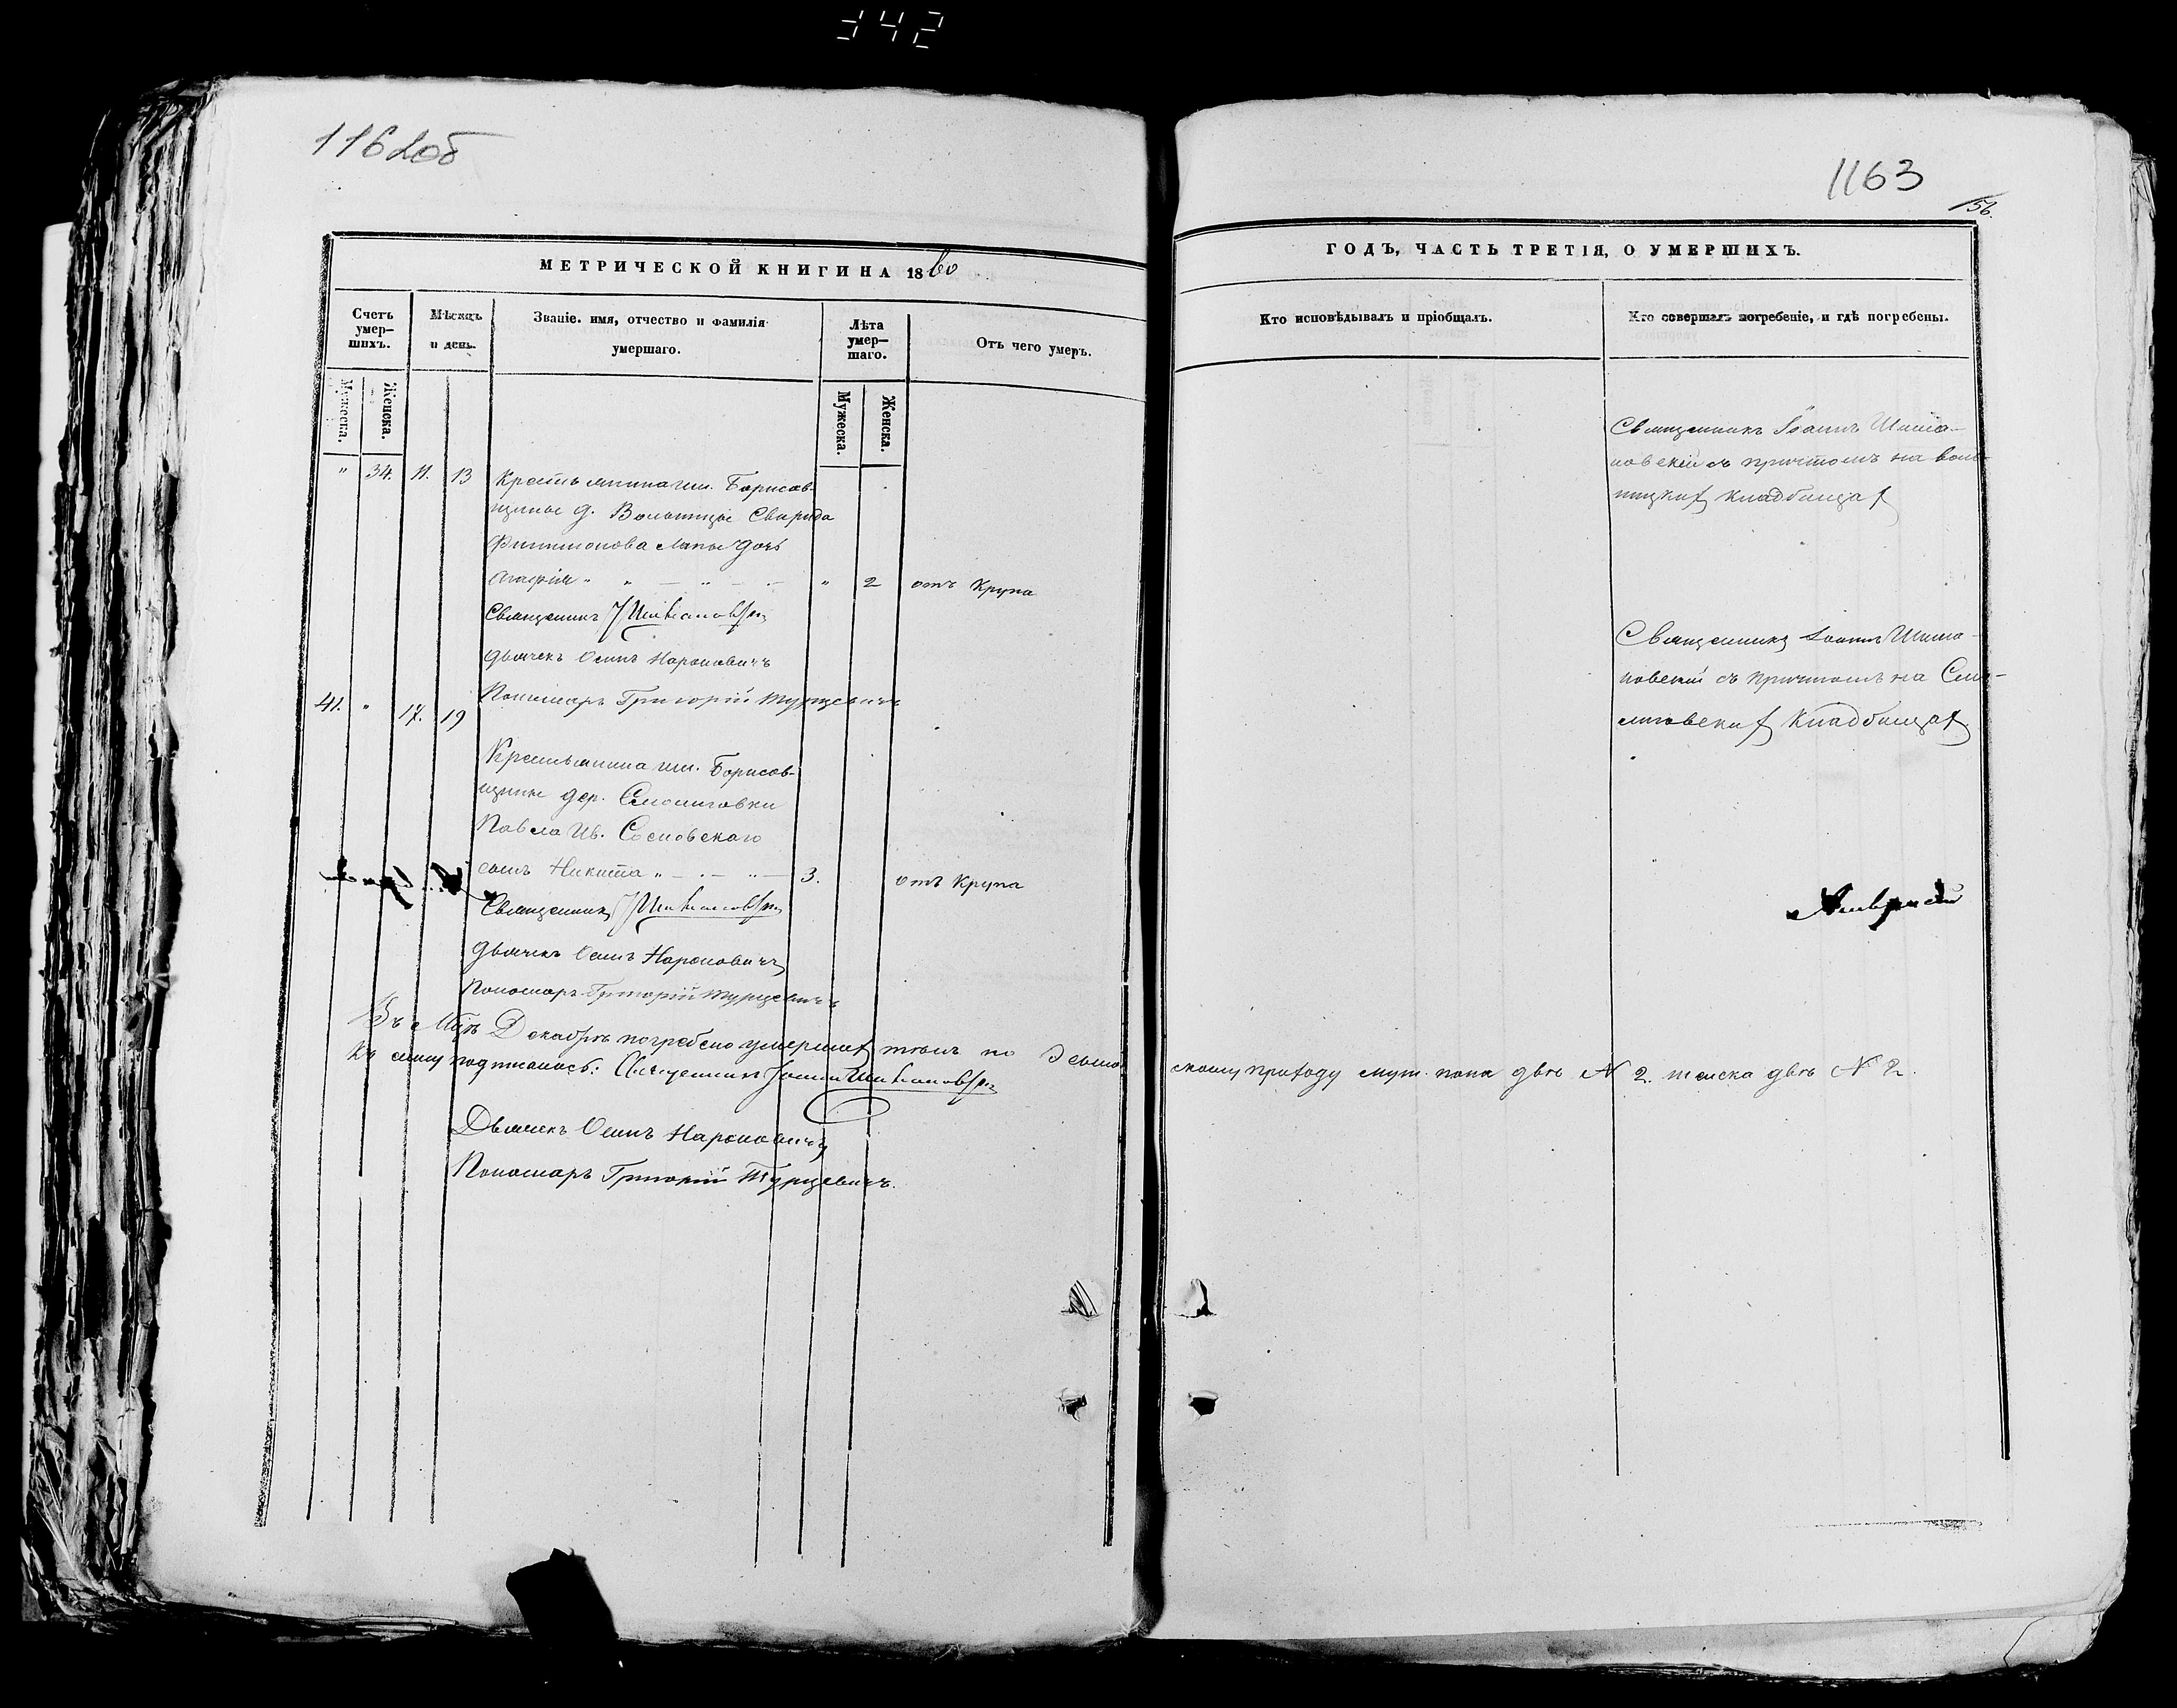 342
1162об
1163
156.
МЕТРИЧЕСКОЙ КНИГИ НА 1860
Счетъ умер-
шихъ.
Мѣсяцъ
и день.
Званіе. имя, отчество и фамилія
умершаго.
Лѣта
умер-
шаго.
Отъ чего умеръ.
Мужеска.
Женска.
Мужеска.
Женска.
" 34. 11. 13 Крестьянина им. Борисов-
щины д. Волотицы Свирида
Филимонова Лапы дочь
Агафія " " — " — " 2 отъ Крупа
Священникъ
Дьячекъ Осипъ Нароновичъ
Пономарь Григорій Турцевичъ
41. " 17. 19
Крестьянина им. Борисов-
щины дер.
Павла Ив. Сосновскаго
сынъ Никита " — " — " — 3. отъ Крупа
Священникъ
Дьячекъ Осипъ Нароновичъ
Пономарь Григорій Турцевичъ
Въ Мцѣ Декабрѣ погребено умершихъ тѣлъ по
Къ сему подписались: Священникъ Іоаннъ
Дьячекъ Осипъ Нароновичъ
Пономарь Григорій Турцевичъ.
ГОДЪ, ЧАСТЬ ТРЕТІЯ, О УМЕРШИХЪ.
Кто исповѣдывалъ и пріобщалъ.
Кто совершалъ погребеніе, и гдѣ погребены.
Священникъ Іоаннъ Шима-
новскій съ причтомъ на
кладбищахъ
Священникъ Іоаннъ Шима-
новскій съ причтомъ на
кладбищахъ
скому приходу муж. пола двѣ № 2. женска двѣ № 2.